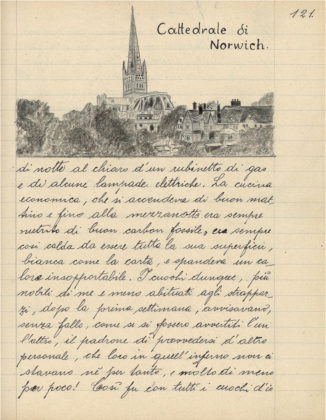 121.
Cattedrale di
Norwich.
di notte al chiaro d'un rubinetto di gas
e di alcune lampade elettriche. La cucina
economica, che si accendeva di buon mat
tino e fino alla mezzanotte era sempre
nutrita di buon carbon fossile, era sempre
così calda da essere tutta la sua superficie,
bianca come la carta, e spandeva un ca
lore insopportabile. I cuochi dunque, più
nobili di me e meno abituati agli strappaz
zi, dopo la prima settimana, avvisavano,
senza fallo, come se si fossero avvertiti l'un
l'altro, il padrone di provvedersi d'altro
personale, che loro in quell'inferno non ci
stavano nè per tanto, e molto di meno
per poco! Così fu con tutti i cuochi d'